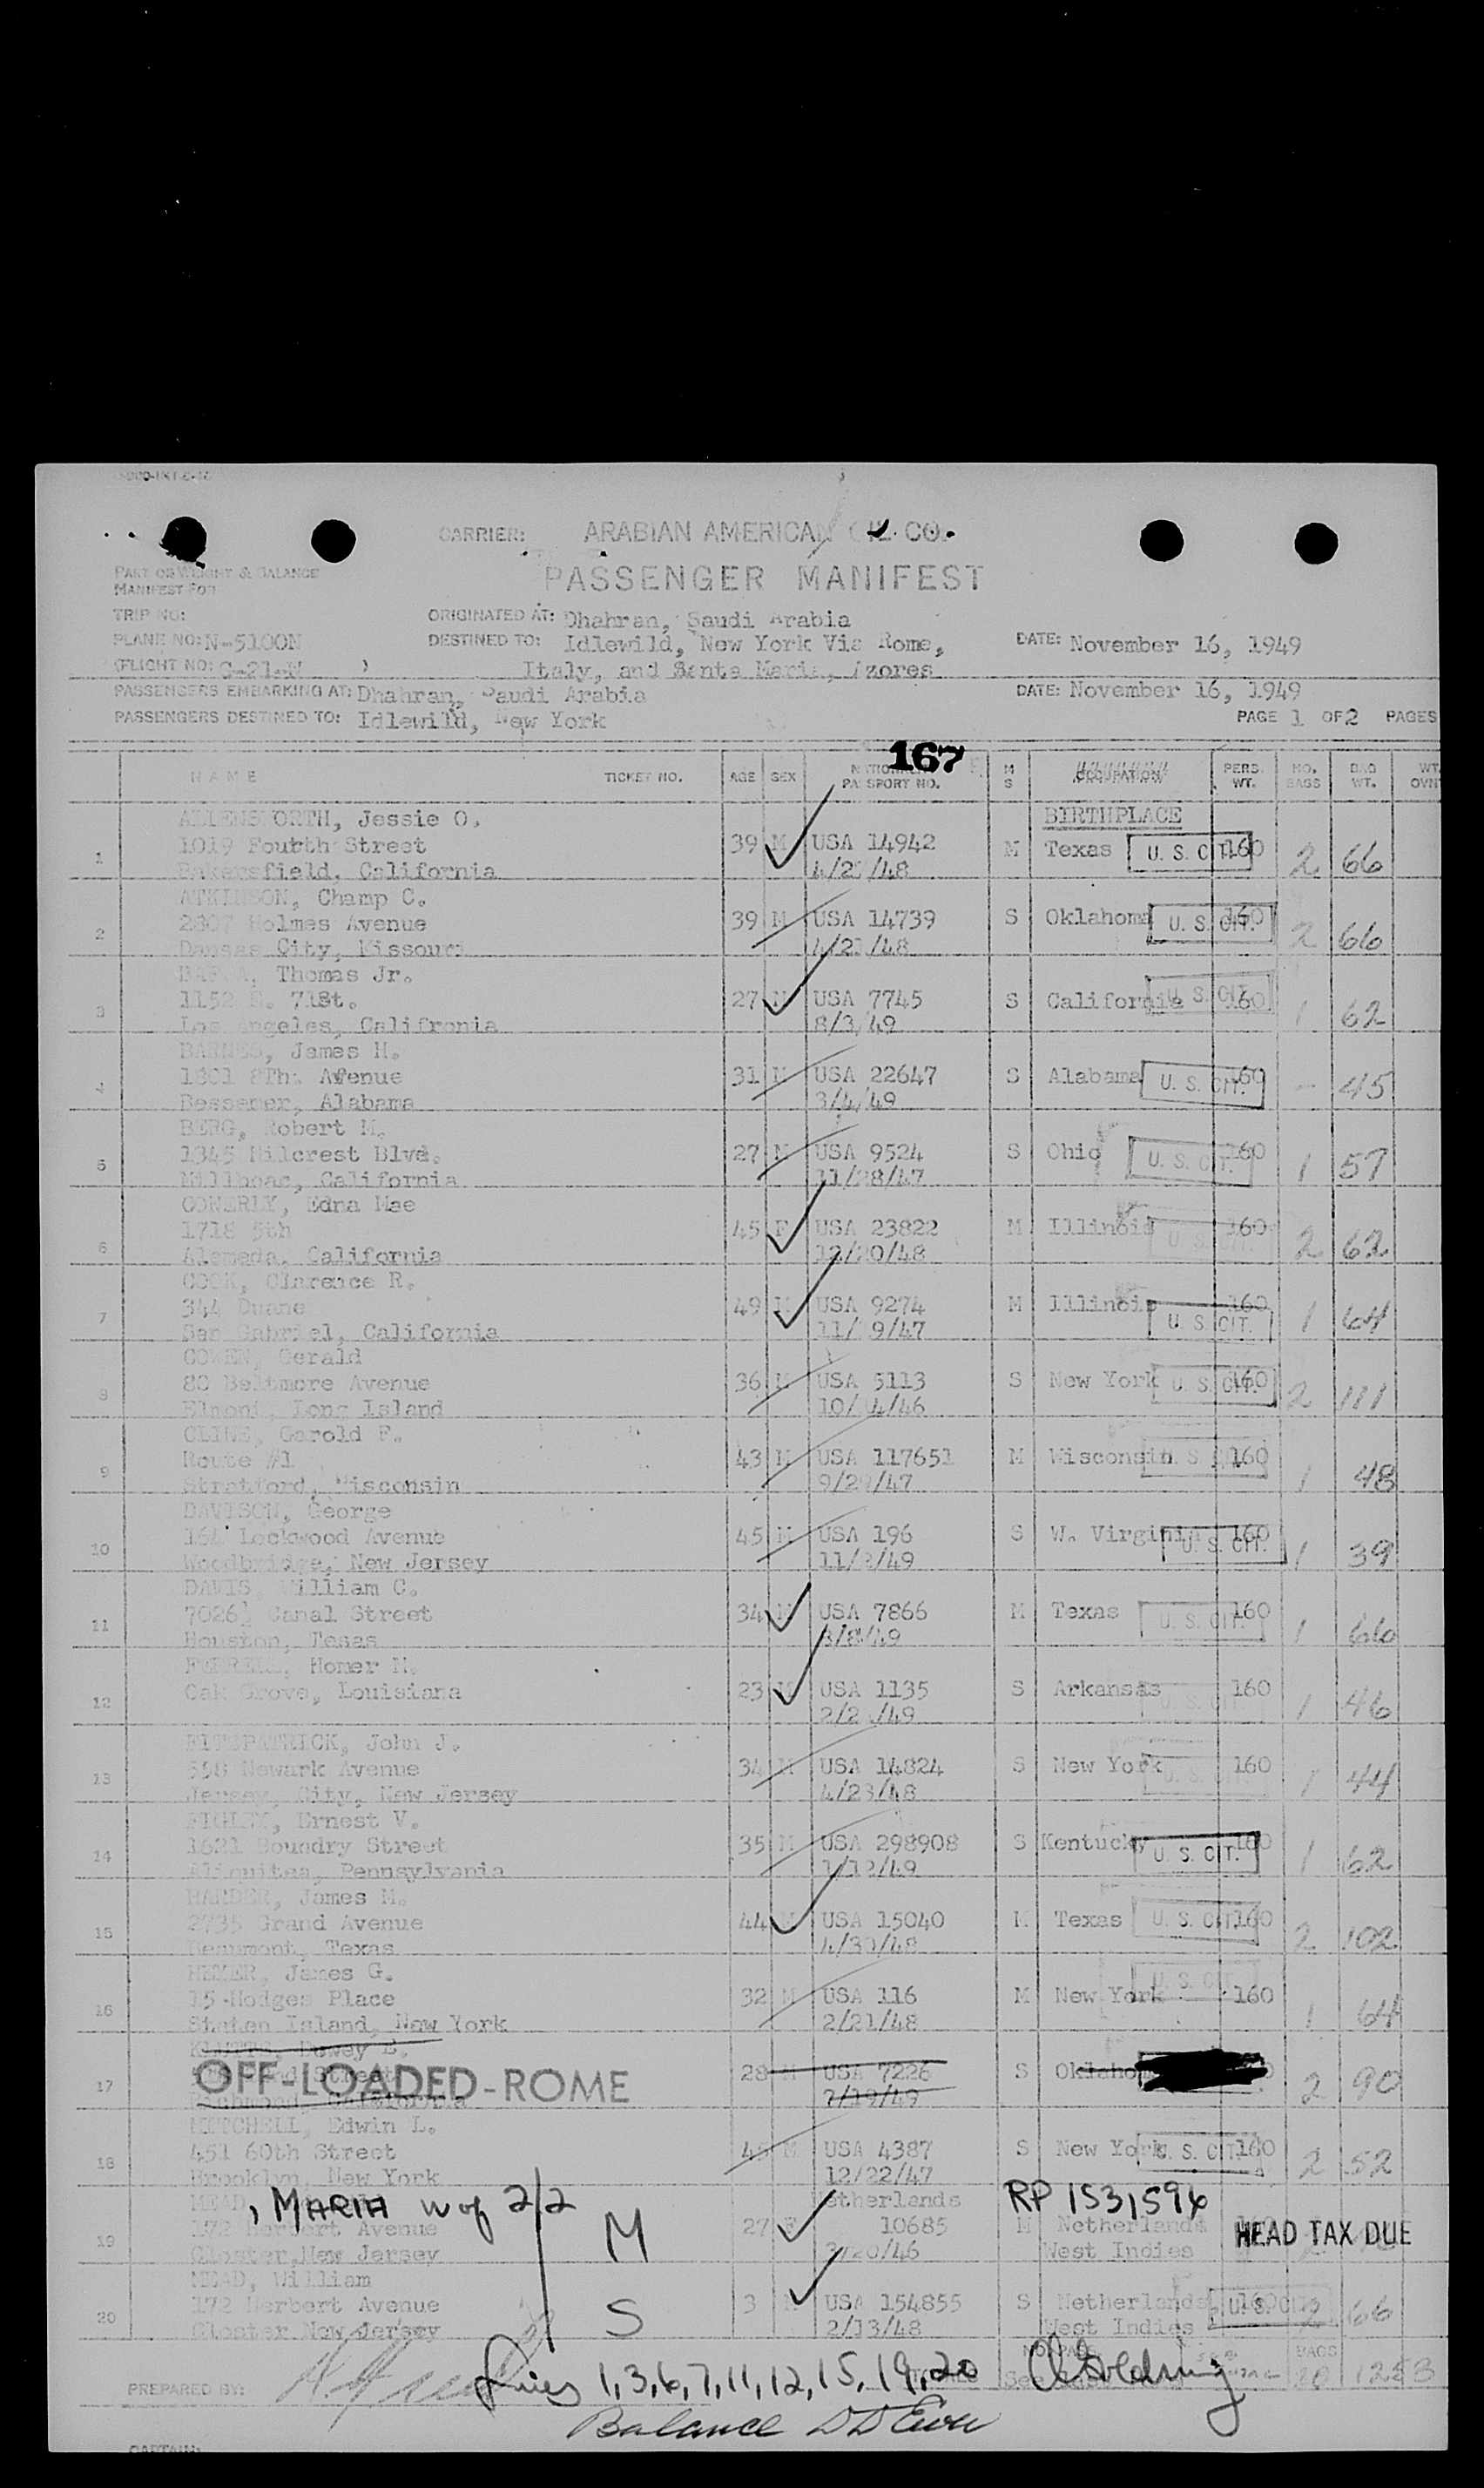 CARRIER: ARABIAN AMERICAN OIL CO.
PART OF WEIGHT & BALANCE
MANIFEST FOR
PASSENGER MANIFEST
TRIP NO: ORIGINATED AT: Dhahran, Saudi Arabia
PLANE NO: N-5100N DESTINED TO: Idlewild, New York Via Rome, DATE: November 16, 1949
(FLIGHT NO: ) Italy, and Santa Maria, Azores
PASSENGERS EMBARKING AT: Dhahran, Saudi Arabia DATE: November 16, 1949
PASSENGERS DESTINED TO: Idlewild, New York PAGE 1 OF 2 PAGES
167
NAME TICKET NO. AGE SEX PASSPORT NO. M S OCCUPATION PERS. WT. NO. BAGS BAG WT. WT. OVN
BIRTHPLACE
ALLENSWORTH, Jessie O.
1 1019 Fourth Street 39 M USA 14942 M Texas U. S. CIT. 160 2 66
Bakersfield, California
ATKINSON, Champ C.
2 2807 Holmes Avenue 39 M USA 14739 S Oklahoma U. S. CIT. 160 2 66
Dansas City, Missouri
Thomas Jr.
3 1152 71St. 27 M USA 7745 S California U. S. CIT. 160 1 62
Los Angeles, Califronia 8/3/49
BARNES, James H.
4 1801 8Th. Avenue 31 M USA 22647 S Alabama U. S. CIT. 160 - 45
Bessemer, Alabama 3/4/49
BERG, Robert M.
5 1345 Hilcrest Blvd. 27 M USA 9524 S Ohio U. S. CIT. 160 1 57
Millboac, California 11/28/47
CONERLY, Edna Mae
6 1718 5th 45 F USA 23822 M Illinois U. S. CIT. 160 2 62
Alameda, California 12/20/48
COOK, Clarence R.
7 344 Duane 49 M USA 9274 M Illinois U. S. CIT. 160 1 64
San Gabriel, California
COWEN, Gerald
8 80 Beltmore Avenue 36 M USA 5113 S New York U. S. CIT. 160 2 111
Elmont, Long Island
CLINE, Gerold F.
9 Route #1 43 M USA 117651 M Wisconsin U. S. CIT. 160 1 48
Stratford, Wisconsin
DAVISON, George
10 164 Lockwood Avenue 45 M USA 196 S W. Virginia U. S. CIT. 160 1 39
Woodbridge, New Jersey 11/2/49
DAVIS, William C.
11 7026½ Canal Street 34 M USA 7866 M Texas U. S. CIT. 160 1 66
Houston, Texas
Homer N.
12 Oak Grove, Louisiana 23 M USA 1135 S Arkansas U. S. CIT. 160 1 46
FITZPATRICK, John J.
13 558 Newark Avenue 34 M USA 14824 S New York U. S. CIT. 160 1 44
Jersey, City, New Jersey 4/23/48
Ernest V.
14 1621 Boundry Street 35 M USA 298908 S Kentucky U. S. CIT. 160 1 62
Aliquitea, Pennsylvania 1/12/49
HARDER, James M.
15 2735 Grand Avenue 44 M USA 15040 M Texas U. S. CIT. 160 2 102
Beaumont, Texas 4/30/48
James G.
16 15 Hodges Place 32 M USA 116 M New York U. S. CIT. 160 1 64
Staten Island, New York 2/21/48
Dewey
OFF-LOADED-ROME
17 Street 28 M USA 7226 S Oklahoma 2 90
California 7/19/49
MITCHELL, Edwin L.
18 451 60th Street M USA 4387 S New York U. S. CIT. 160 2 52
Brooklyn, New York 12/22/47
MEAD, MARIA w of 2/2 Netherlands RP 1531596
19 172 Herbert Avenue M 27 F 10685 M Netherlands HEAD TAX DUE
Closter, New Jersey West Indies
MEAD, William
20 172 Herbert Avenue S 3 M USA 154855 S Netherlands U. S. CIT. 160 66
Closter New Jersey 2/13/48 West Indies
PREPARED BY: Lines 1,3,6,7,11,12,15,19,20
BAGS
Balance
CAPTAIN: